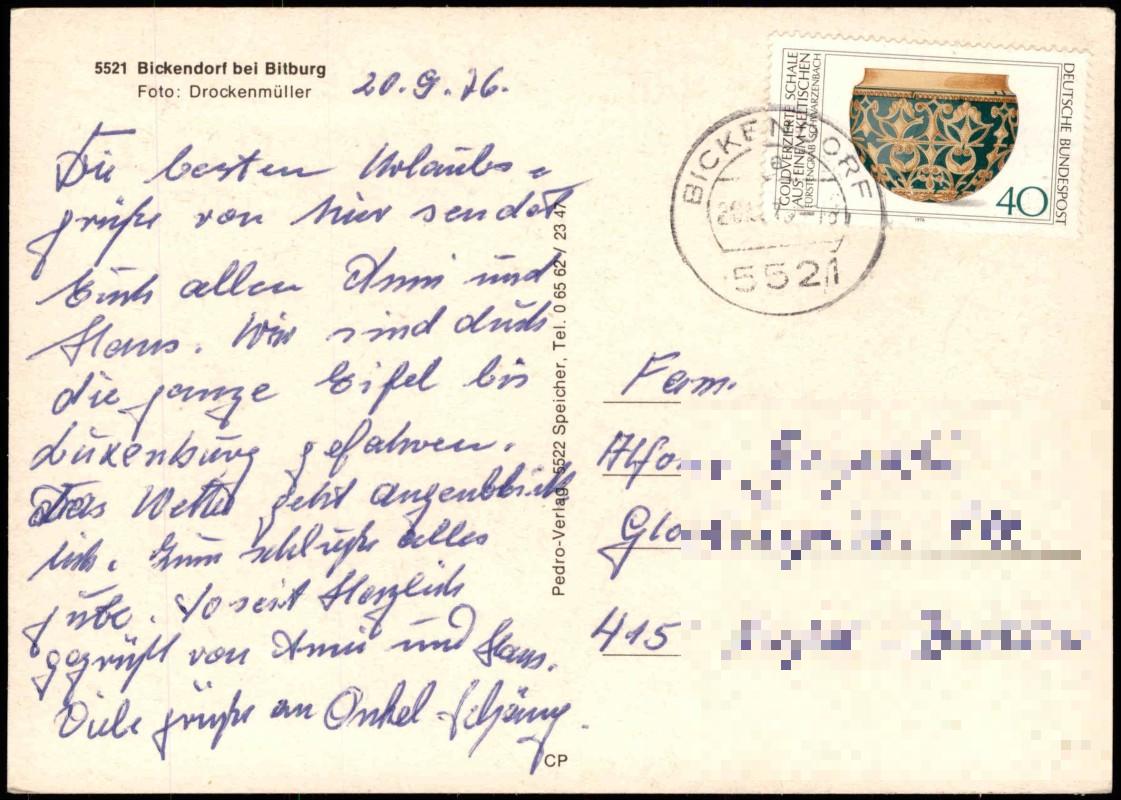 5521 Bickendorf bei Bitburg
Foto: Drockenmüller
20.9.76.
Die besten Urlaubs =
grüße von hier sendet
Euch allen Anni und
Hans. Wir sind durch
die ganze Eifel bis
Luxenburg gefahren.
Das Wetter geht augenblick
lich. Zum schluße alles
gute. So seit Herzlich
gegrüßt von Anni und Hans.
Viele grüße an Onkel
Pedro-Verlag, 5522 Speicher, Tel. 0 65 62 / 23 47
CP
GOLDVERZIERTE SCHALE
AUS EINEM KELTISCHEN
FÜRSTENGRAB · SCHWARZENBACH
DEUTSCHE BUNDESPOST
40
1976
BICKENDORF
5521
Fam.
Alfo
Glo
415